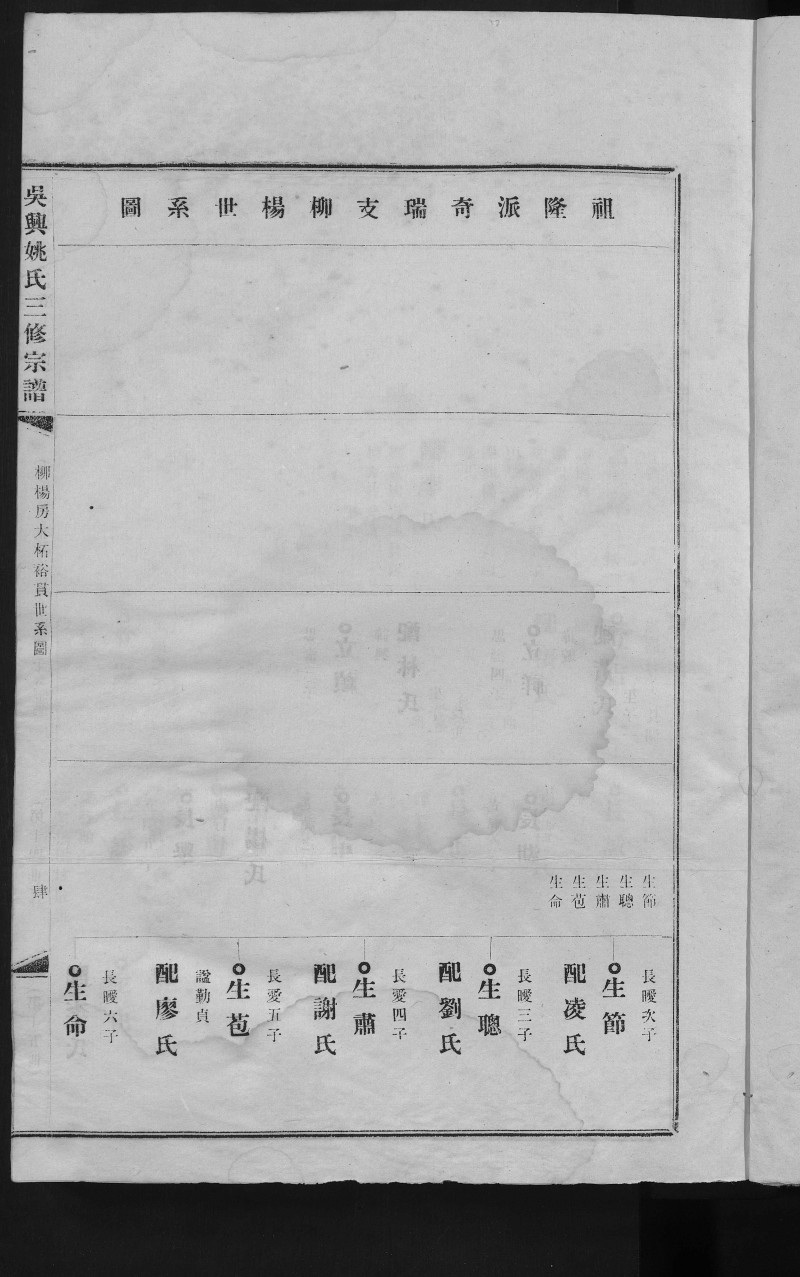 祖隆派奇瑞支柳楊世系圖
生節
生聰
生肅
生苞
生命
長曖次子
生節
配凌氏
長曖三子
生聰
配劉氏
長愛四子
生肅
配謝氏
長愛五子
生苞
謚勤貞
配廖氏
長曖六子
生命
吳興姚氏三修宗譜
柳楊房大柘裕貫世系圖
肆